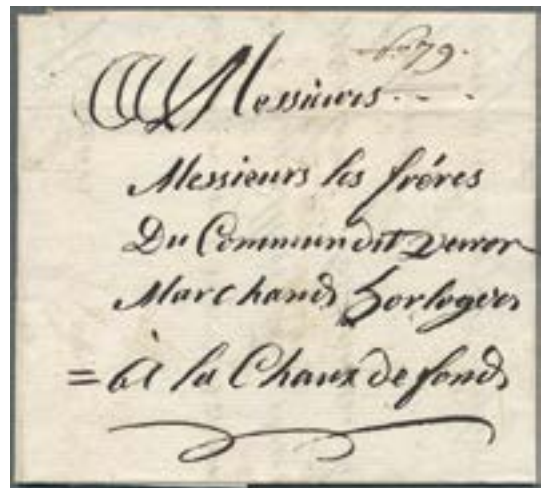 A Messieurs
Messieurs les fréres
Du Commun dit Verron
Marchands horlogers
= à la Chaux de fonds